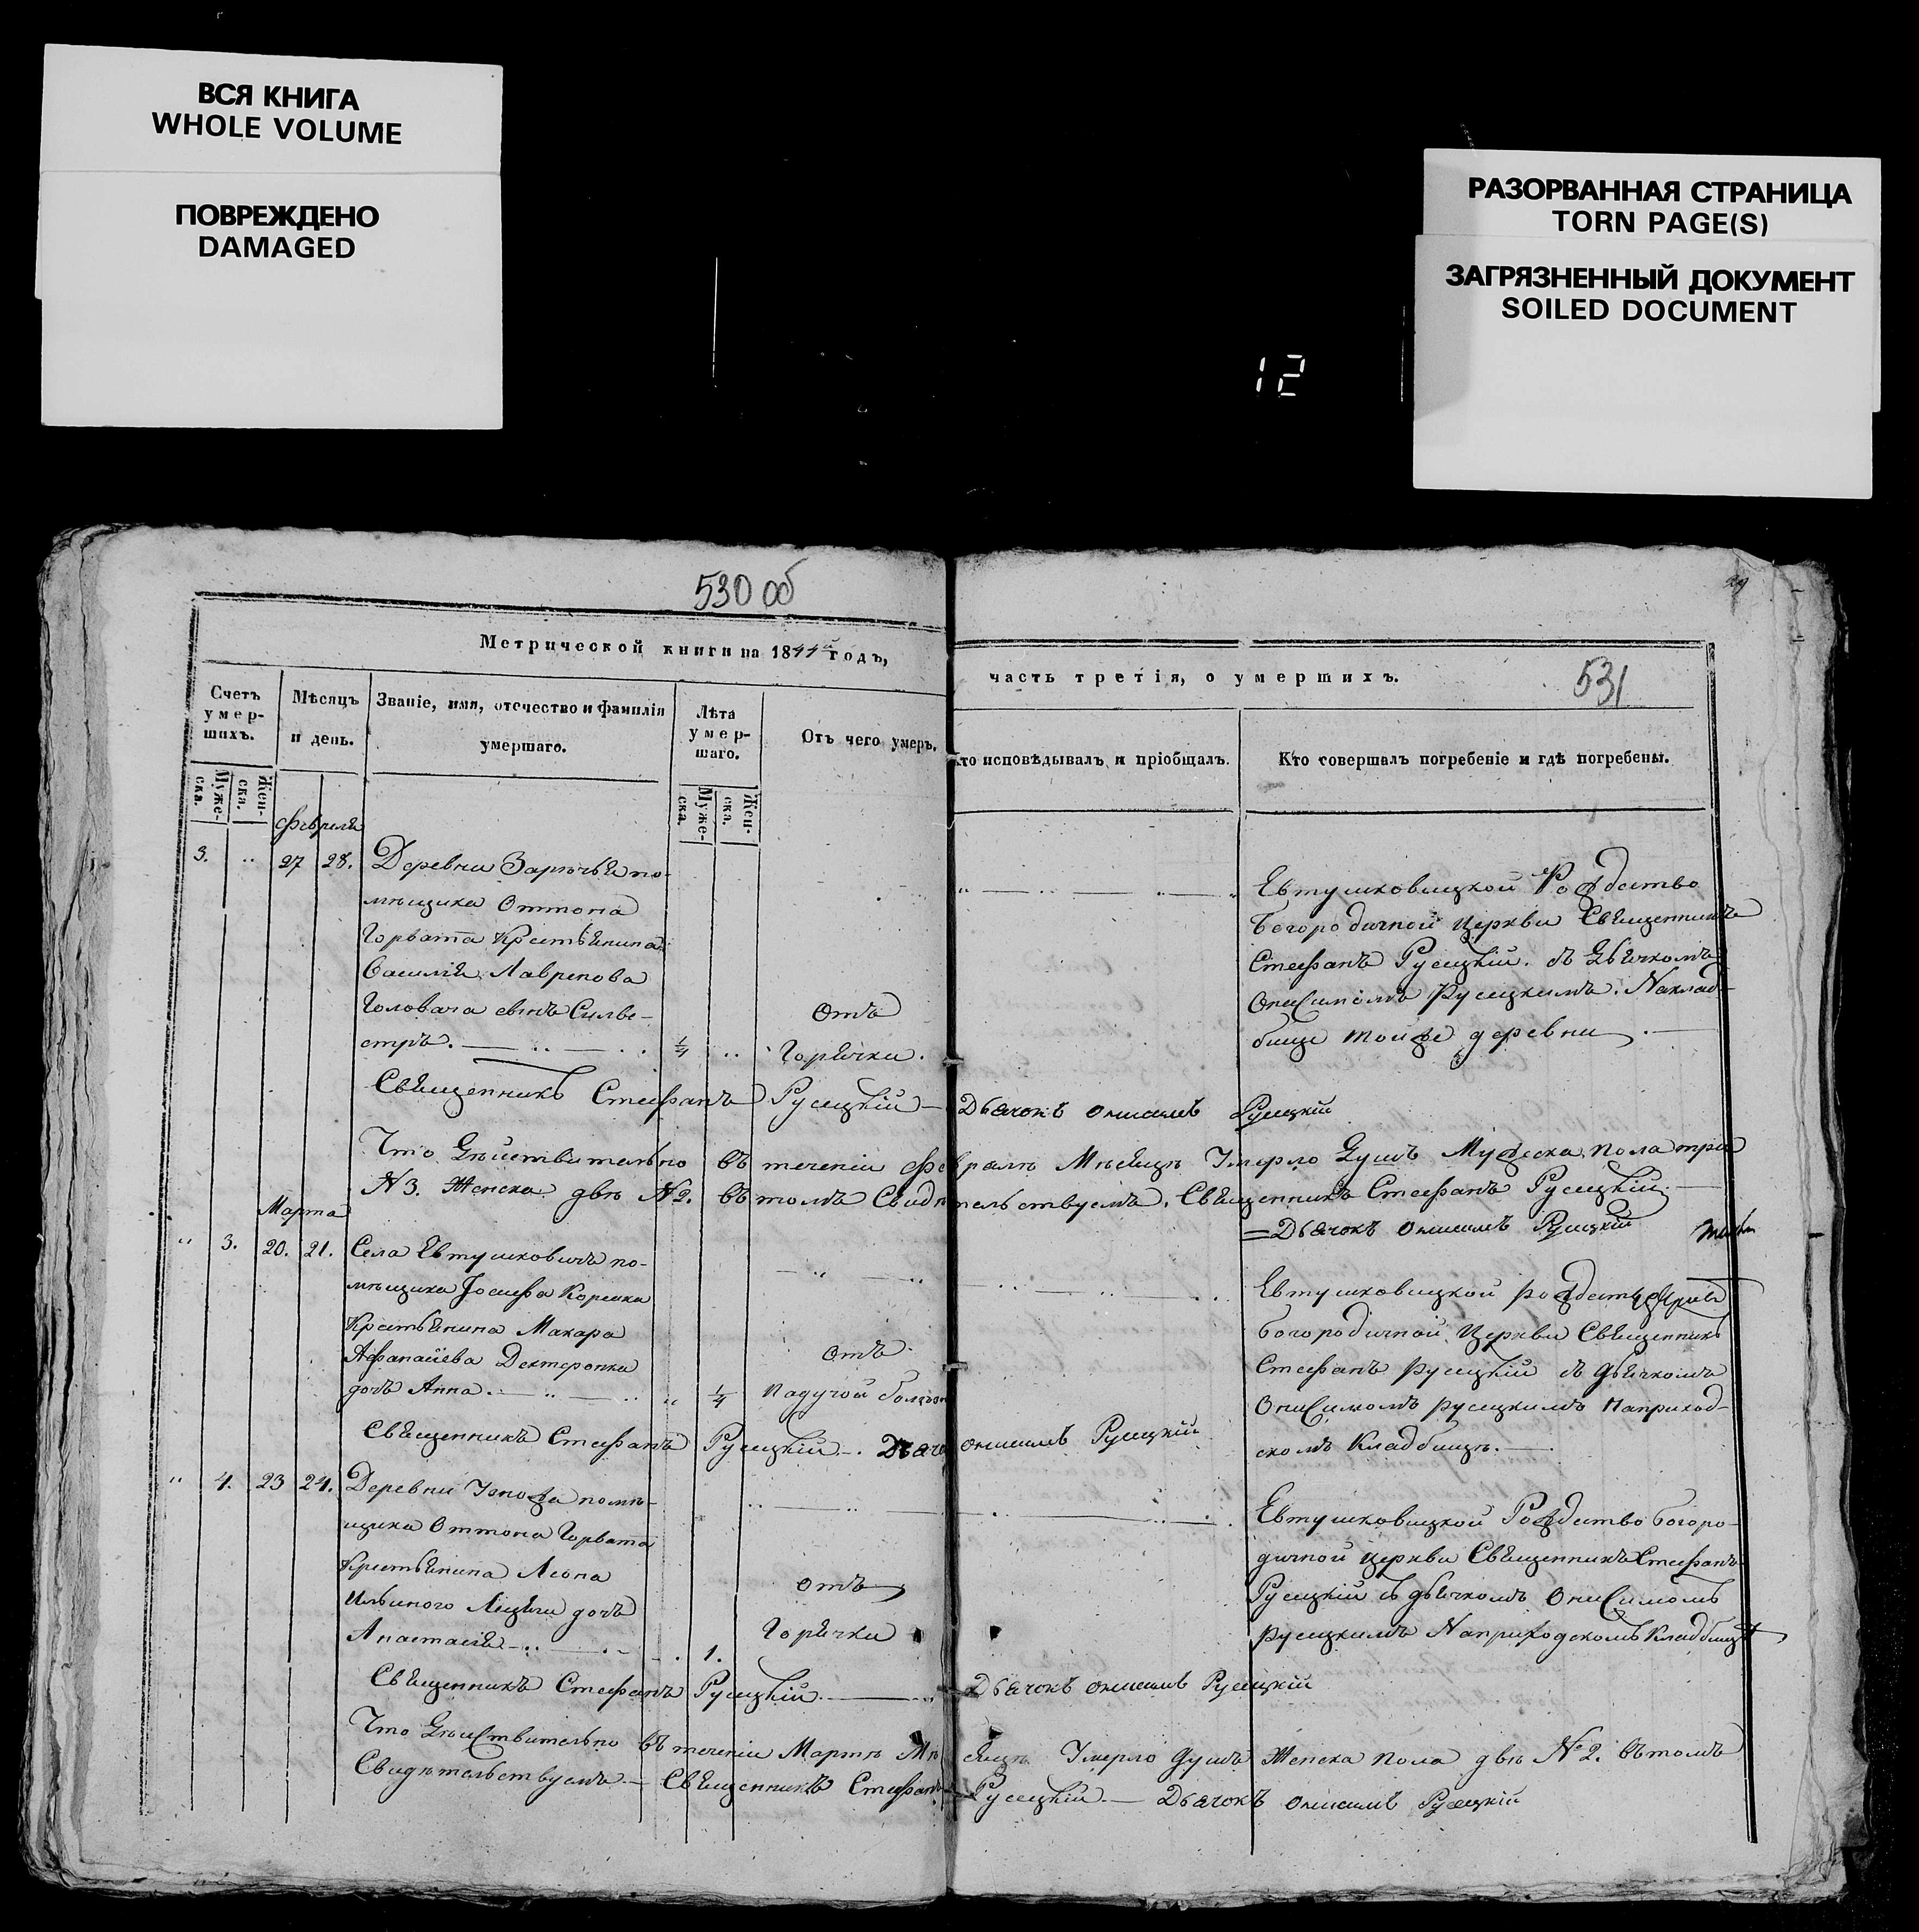 ВСЯ КНИГА
WHOLE VOLUME
ПОВРЕЖДЕНО
DAMAGED
РАЗОРВАННАЯ СТРАНИЦА
TORN PAGE(S)
ЗАГРЯЗНЕННЫЙ ДОКУМЕНТ
SOILED DOCUMENT
12
530 об
Метрической книги на 1844 годъ,
Счетъ умер-шихъ.
Мѣсяцъ и день.
Званіе, имя, отечество и фамилія умершаго.
Лѣта умер-шаго.
Отъ чего умеръ.
Муже-ска.
Жен-ска.
Муже-ска.
Жен-ска.
Февраля
3. 27 28. Деревни Заречья по-
мѣщика Оттона
Горвата Крестьянина
Василія Лавренова
Головача сынъ Силве- Отъ
стръ. 1/4 Горячки.
Священникъ Стефанъ Русецкій — Дьячокъ Онисимъ Русецкій
Что Дѣйствительно въ теченіи Февралѣ Мѣсяцѣ Умерло Душъ Мужеска пола три
N 3. Женска двѣ N 2. Въ томъ Свидѣтельствуемъ. Священникъ Стефанъ Русецкій.
= Дьячокъ Онисимъ Русецкій
Марта
3. 20. 21. Села Евтушковичъ по-
мѣщика Іосифа Корсака
Крестьянина Макара
Афанасіева Дехтеронка Отъ
дочь Анна. 1/4 падучой болѣзн
Священникъ Стефанъ Русецкій. Дьячо Онисимъ Русецкій
4. 23 24. Деревни помѣ-
щика Оттона Горвата
Крестьянина Леона
Ильиного дочь Отъ
Анастасія 1. Горячки
Священникъ Стефанъ Русецкій. Дьячокъ Онисимъ Русецкій
Что Дѣйствительно въ теченіи Мартѣ Мѣсяцѣ Умерло душъ Женска пола двѣ N 2. Въ томъ
Свидѣтельствуемъ — Священникъ Стефанъ Русецкій. — Дьячокъ Онисимъ Русецкій
29
531
часть третія, о умершихъ.
Кто исповѣдывалъ и пріобщалъ.
Кто совершалъ погребеніе и гдѣ погребены.
Евтушковицкой Рождество
Богородичной Церкви Священникъ
Стефанъ Русецкій. съ Дьячкомъ
Онисимомъ Русецкимъ. На клад-
бище тойже деревни
Евтушковицкой
Богородичной Церкви Священникъ
Стефанъ Русецкій съ дьячкомъ
Онисимомъ Русецкимъ На приход-
скомъ Кладбищѣ.
Евтушковицкой Рождество Богоро-
дичной церкви Священникъ Стефанъ
Русецкій съ дьячкомъ Онисимомъ
Русецкимъ На приходскомъ Кладбищѣ